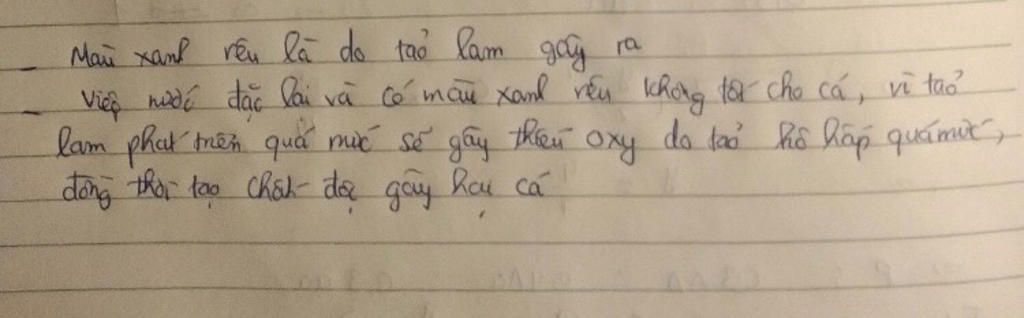 - Màu xanh rêu là do tảo lam gây ra
- Việc nước đặc lại và có màu xanh rêu không tốt cho cá, vì tảo
lam phát triển quá mức sẽ gây thiếu oxy do tảo hô hấp quá mức,
đồng thời tạo chất độc gây hại cá